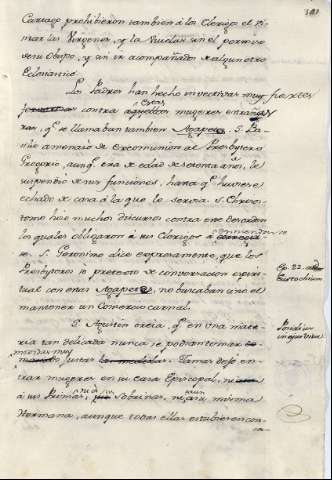 Cartago prohibieron tambien á los Clerigos el
mar las Virgenes, y las Viudas sin el permiso
de su Obispo, y sin ir acompañados de algun otro
Eclesiastico.
Los Padres han hecho invectivas muy fuertes
contra estas mugeres estrañas,
q.e se llamaban tambien Agapetas. S. Ba-
silio amenazó de excomunion al Presbytero
Gregorio, aunq.e era de edad de setenta años, le
suspendió de sus funciones, hasta q.e huviese
echado de casa á la que le servia. S. Chrisos-
tomo hizo muchos discursos contra este desorden
los quales obligaron á sus Clerigos á
se. S. Geronimo dice expresamente, que los
Presbyteros so pretexto de conversacion espiri-
tual con estas Agapetas, no buscaban sino el
mantener un Comercio carnal.
S. Agustin creia, q.e en una mate-
ria tan delicada nunca se podian tomar
medidas muy justas. Jamas dexó en-
trar mugeres en su casa Episcopal,
á sus Primas, Sobrinas, ni aun á su misma
Hermana, aunque todas ellas estubiesen con-
Ep. 22. ad
Eustochium
Posidius
in ejus vita